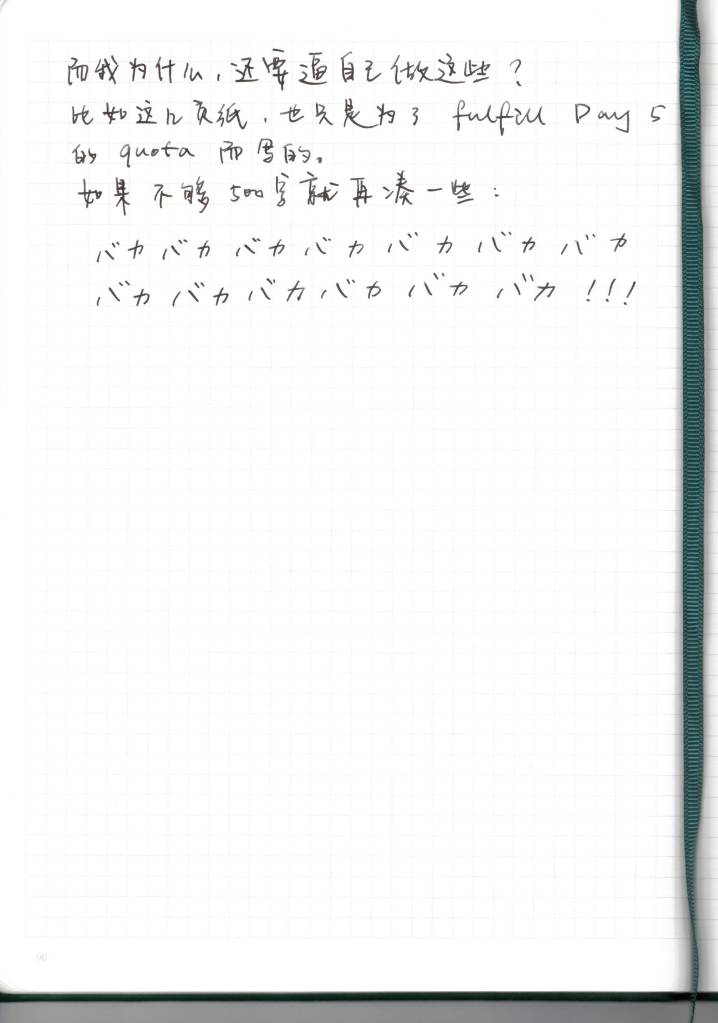 而我为什么，还要逼自己做这些？
比如这几页纸，也只是为了 fulfill Day 5
的 quota 而写的。
如果不够500字就再凑一些：
バカ バカ バカ バカ バカ バカ バカ
バカ バカ バカ バカ バカ バカ !!!
90